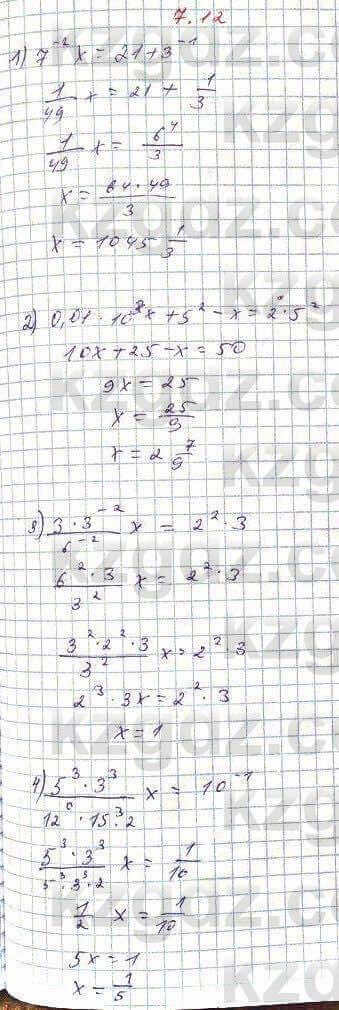 7.12
1) 7⁻²x = 21+3⁻¹
1/49 x = 21 + 1/3
1/49 x = 64/3
x = 64·49/3
x = 1045 1/3
2) 0,01·10³x + 5² - x = 2·5²
10x+25-x=50
9x = 25
x = 25/9
x = 2 7/9
3) 3·3⁻²/6⁻² x = 2²·3
6²·3/3² x = 2²·3
3²·2²·3/3² x = 2²·3
2³·3x = 2²·3
x = 1
4) 5³·3³/12⁰·15³·2 x = 10⁻¹
5³·3³/5³·3³·2 x = 1/10
1/2 x = 1/10
5x = 1
x = 1/5
kzgdz.com